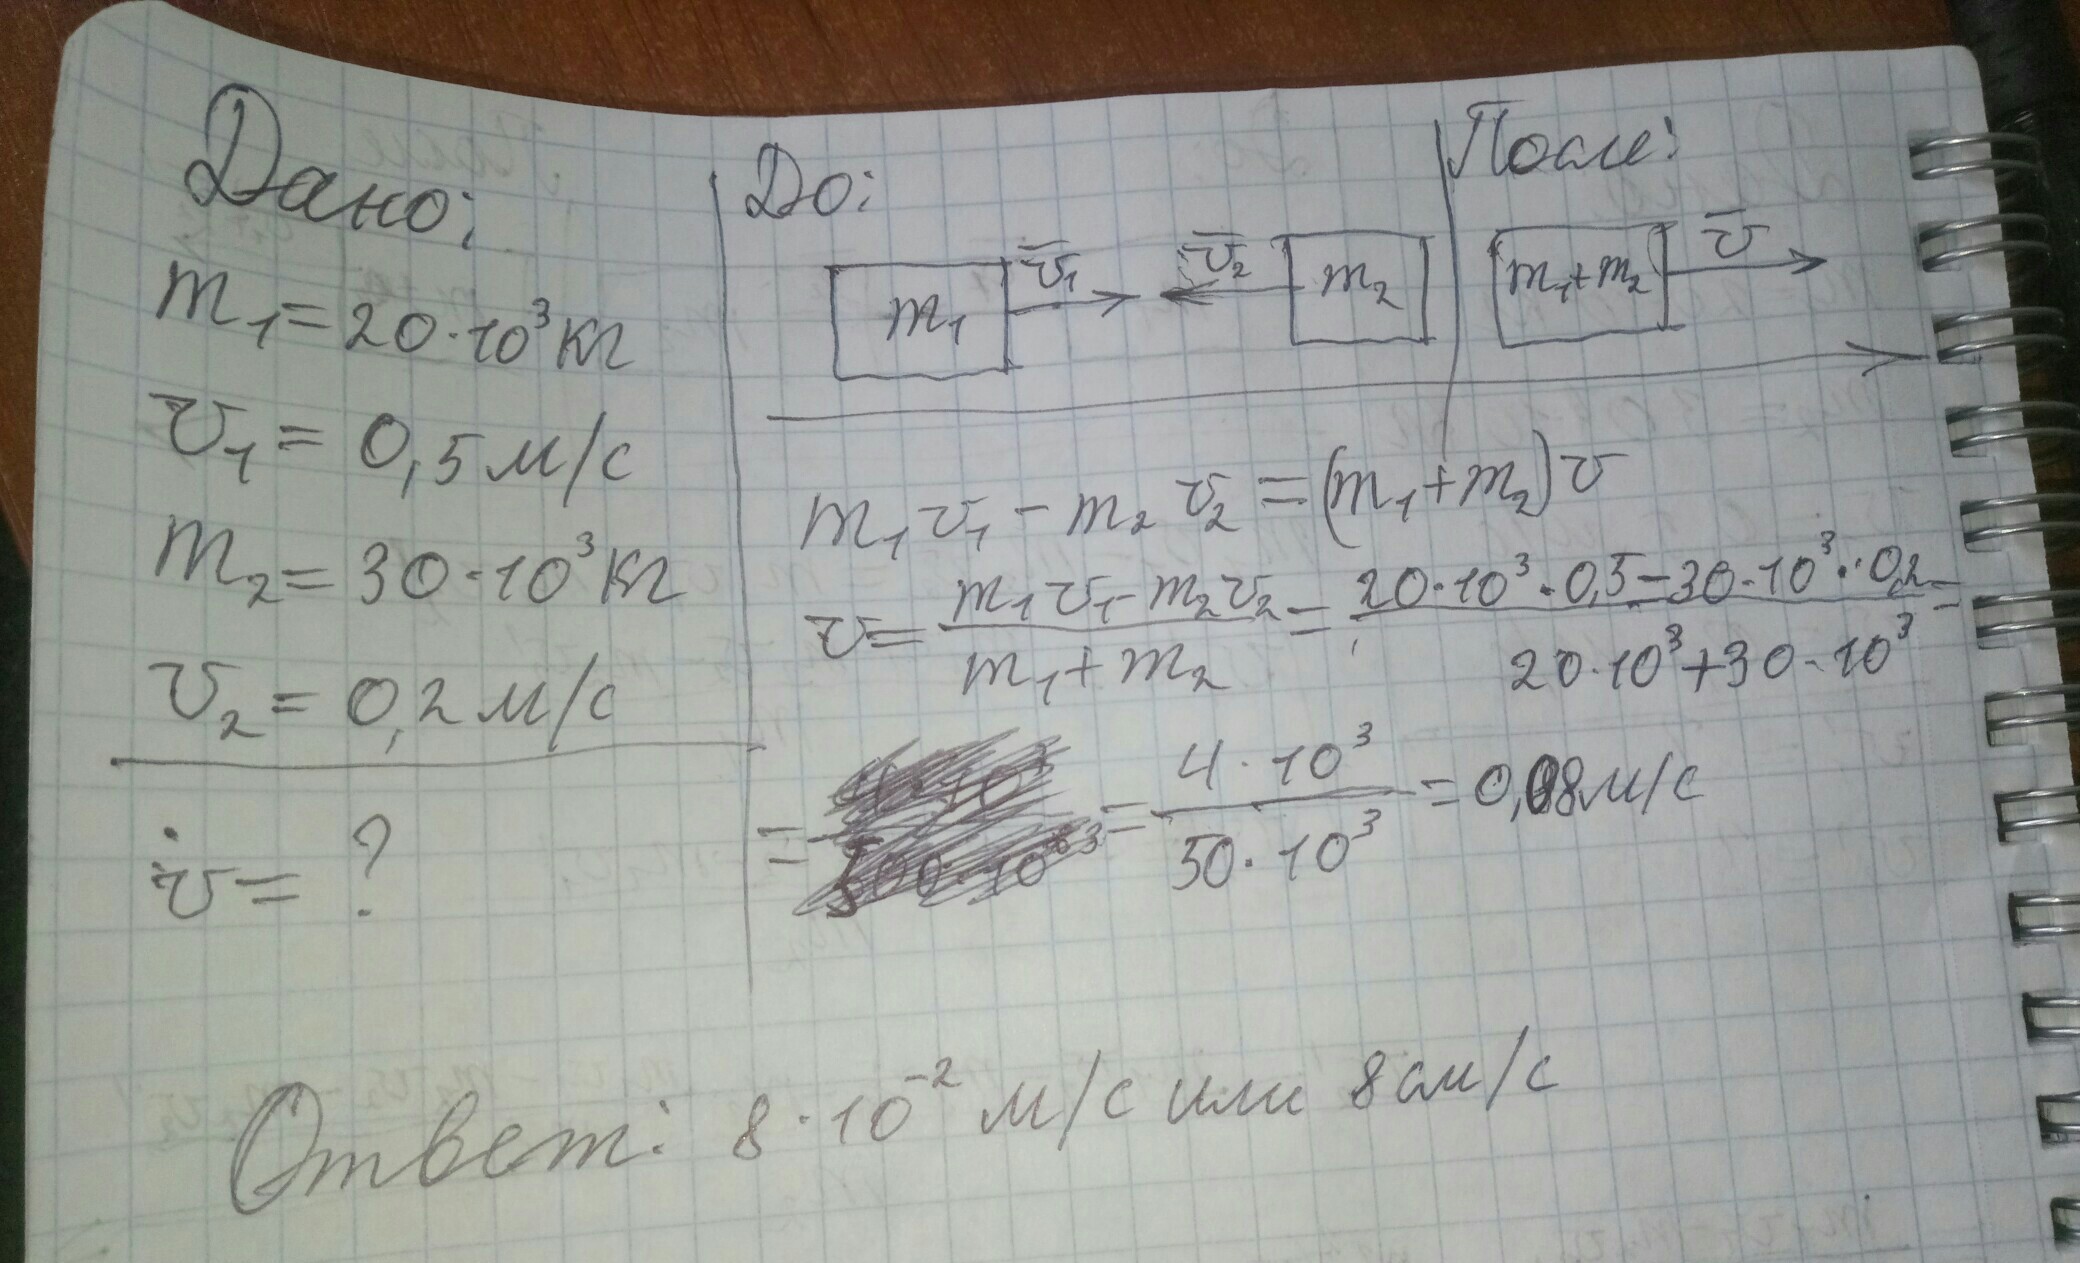 Дано:
m₁ = 20·10³ кг
v₁ = 0,5 м/с
m₂ = 30·10³ кг
v₂ = 0,2 м/с
v = ?
До:
m₁ v̄₁ v̄₂ m₂
После:
m₁+m₂ v̄
m₁v₁ − m₂v₂ = (m₁+m₂)v
v = (m₁v₁ − m₂v₂)/(m₁+m₂) = (20·10³·0,5 − 30·10³·0,2)/(20·10³+30·10³) =
= = (4·10³)/(50·10³) = 0,08 м/с
Ответ: 8·10⁻² м/с или 8 см/с